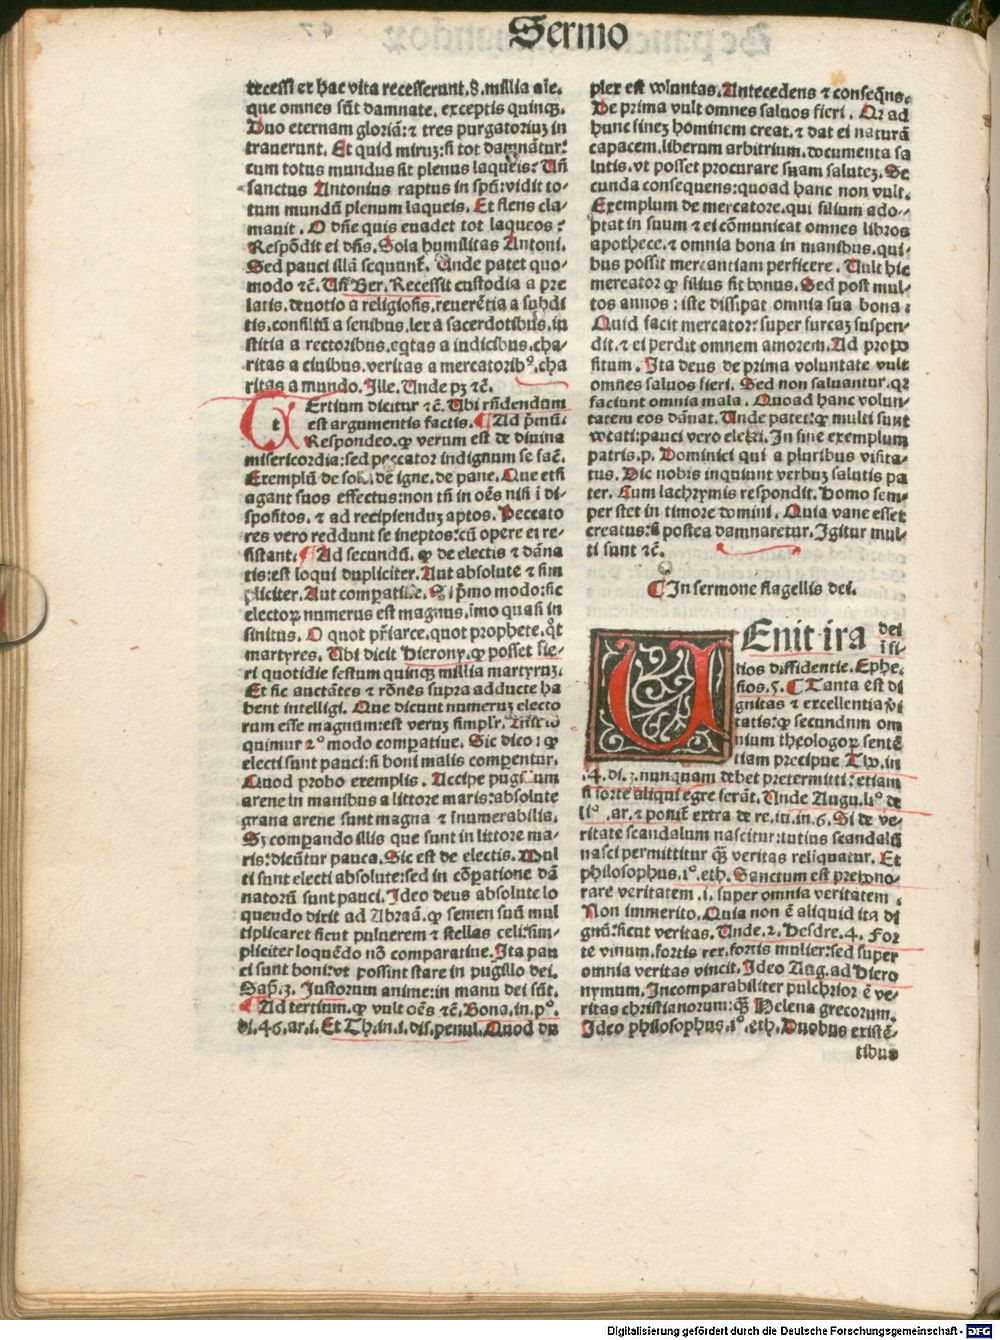 Sermo
decessi ex hac vita recesserunt.8.millia aīe.
que omnes sūt damnate. exceptis quinqꝫ.
Duo eternam gloriā: ⁊ tres purgatoriuꝫ in
trauerunt. Et quid miruꝫ: si tot damnātur:
cum totus mundus sit plenus laqueis? Uñ
sanctus Antonius raptus in spū: vidit to-
tum mundū plenum laqueis. Et flens cla-
mauit. O dñe quis euadet tot laqueos?
Respōdit ei dñs. Sola humilitas Antoni.
Sed pauci illā sequunt̄. Unde patet quo-
modo ⁊c̄. Uñ Ber. Recessit custodia a pre
latis. deuotio a religiosis. reuerētia a subdi
tis. consiliū a senibus. lex a sacerdotibus. iu
stitia a rectoribus. eqtas a iudicibus. cha-
ritas a ciuibus. veritas a mercatorib⁹. cha
ritas a mundo. Ille. Unde pꝫ ⁊c̄.
tErtium dicitur ⁊c̄. Ubi rñdendum
est argumentis factis. Ad p̄mū.
Respondeo. ꝙ verum est de diuina
misericordia: sed peccator indignum se facē.
Exemplū de sole. de igne. de pane. Que etsi
agant suos effectus: non tñ in oēs nisi ī di-
spositos. ⁊ ad recipienduꝫ aptos. Peccato
res vero reddunt se ineptos: cū opere ei re-
sistant. Ad secundū. ꝙ de electis ⁊ dāna
tis: est loqui dupliciter. Aut absolute ⁊ sim
pliciter. Aut comparatiue. Si p̄mo modo: sic
electoꝝ numerus est magnus. īmo quasi in
finitus. O quot pr̄iarce. quot prophete. q̊t
martyres. Ubi dicit Hierony. ꝙ posset fie-
ri quotidie festum quinqꝫ millia martyruꝫ.
Et sic auctātes ⁊ rōnes supra adducte ha
bent intelligi. Que dicunt numeruꝫ electo
rum esse magnum: est veruꝫ simplr̄.
quimur 2° modo compatiue. Sic dico: ꝙ
electi sunt pauci: si boni malis compentur.
Quod probo exemplis. Accipe pugillum
arene in manibus a littore maris: absolute
grana arene sunt magna ⁊ īnumerabilia.
Sꝫ compando illis que sunt in littore ma-
ris: dicūtur pauca. Sic est de electis. Mul
ti sunt electi absolute: sed in cōpatione dā
natorū sunt pauci. Ideo deus absolute lo
quendo dixit ad Abraā. ꝙ semen suū mul
tiplicaret sicut puluerem ⁊ stellas celi: sim-
pliciter loquēdo nō comparatiue. Ita pau
ci sunt boni: vt possint stare in pugillo dei.
Sap̄.3. Justorum anime: in manu dei sūt.
Ad tertium. ꝙ vult oēs ⁊c̄. Bona. in. p°.
di. 46. ar. i. Et Th. in. i. dis. penul. Quod du
plex est voluntas. Antecedens ⁊ conseq̄ns.
De prima vult omnes saluos fieri. Qꝛ ad
hunc fineꝫ hominem creat. ⁊ dat ei naturā
capacem. liberum arbitrium. documenta sa
lutis. vt posset procurare suam saluteꝫ. Se
cunda consequens: quoad hanc non vult.
Exemplum de mercatore. qui filium ado-
ptat in suum ⁊ ei cōmunicat omnes libros
apothece. ⁊ omnia bona in manibus. qui-
bus possit mercantiam perficere. Uult hic
mercator ꝙ filius sit bonus. Sed post mul-
tos annos: iste dissipat omnia sua bona:
Quid facit mercator: super furcaꝫ suspen-
dit. ⁊ ei perdit omnem amorem. Ad propo
situm. Ita deus de prima voluntate vult
omnes saluos fieri. Sed non saluantur. qꝛ
faciunt omnia mala. Quoad hanc volun-
tatem eos dānat. Unde patet: ꝙ multi sunt
vocati: pauci vero electi. In fine exemplum
patris. p. Dominici qui a pluribus visita-
tus. Dic nobis inquiunt verbuꝫ salutis pa
ter. Cum lachrymis respondit. Homo sem-
per stet in timore domini. Quia vane esset
creatus: si postea damnaretur. Igitur mul-
ti sunt ⁊c̄.
In sermone flagellis dei.
UEnit ira dei
ī fi-
lios diffidentie. Ephe-
sios. 5. Tanta est di
gnitas ⁊ excellentia v̄i
tatis: ꝙ secundum om
nium theologoꝝ sentē
tiam precipue Tho. in
.4. di. 3. nunquam debet pretermitti: etiam
si forte aliqui egre ferāt. Unde Augu. li° de
li°. ar. ⁊ ponit̄ extra de re. iu. in. 6. Si de ve-
ritate scandalum nascitur: tutius scandalū
nasci permittitur qꝫ̄ veritas relīquatur. Et
philosophus. i°. eth. Sanctum est prehono-
rare veritatem. i. super omnia veritatem.
Non immerito. Quia non ē aliquid ita di
gnū: sicut veritas. Unde. 2. Hesdre. 4. For
te vinum. fortis rex. fortis mulier: sed super
omnia veritas vincit. Ideo Aug. ad Hiero
nymum. Incomparabiliter pulchrior ē ve-
ritas christianorum: qꝫ̄ Helena grecorum.
Ideo philosophus. i°. eth. Duobus existē-
tibus
Digitalisierung gefördert durch die Deutsche Forschungsgemeinschaft - DFG